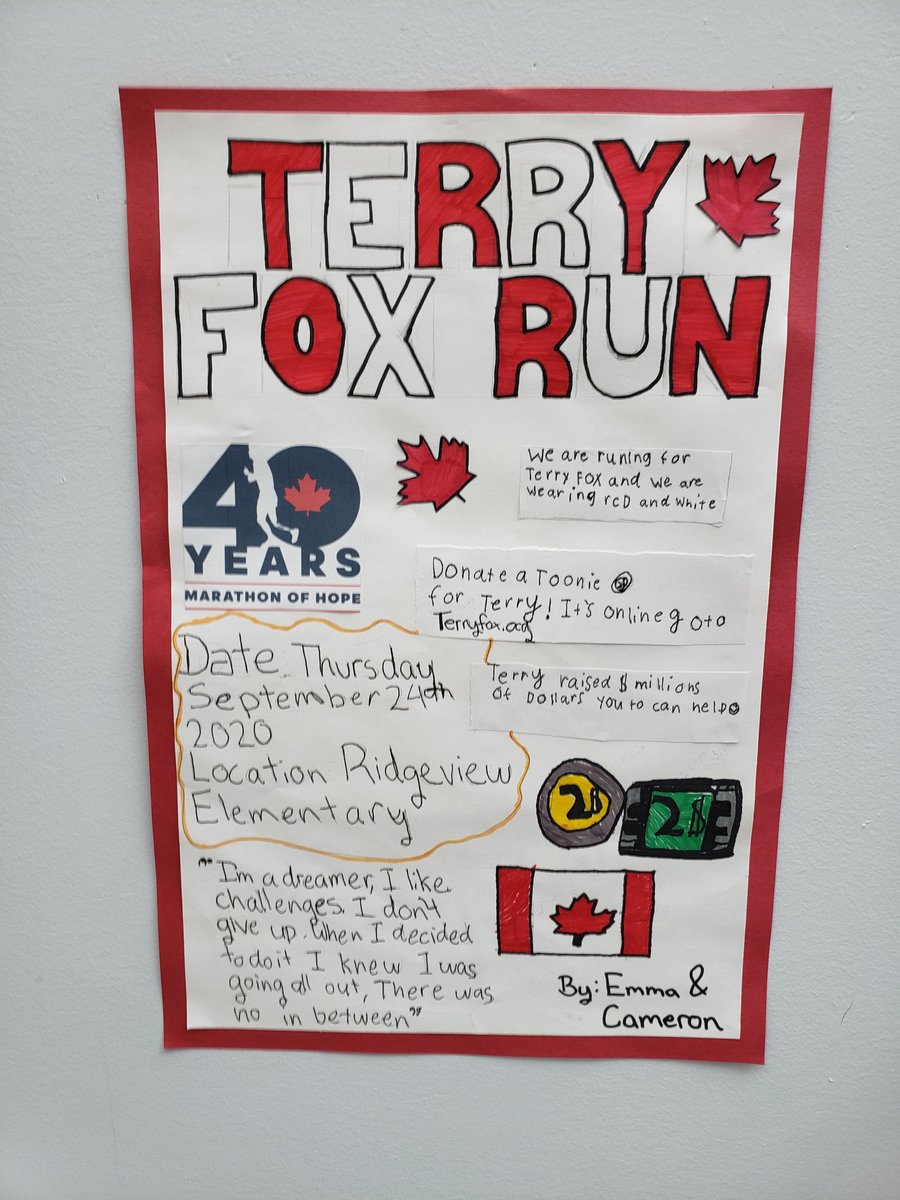 TERRY
FOX RUN
40
YEARS
MARATHON OF HOPE
We are runing for
Terry FOX and we are
wearing reD and white
Donate a Toonie
for Terry! It's online go to
Terryfox.org
Terry raised $ millions
of Dollars you to can help
Date Thursday
September 24th
2020
Location Ridgeview
Elementary
2$
2$
"I'm a dreamer, I like
challenges. I don't
give up. When I decided
to do it I knew I was
going all out, There was
no in between"
By: Emma &
Cameron